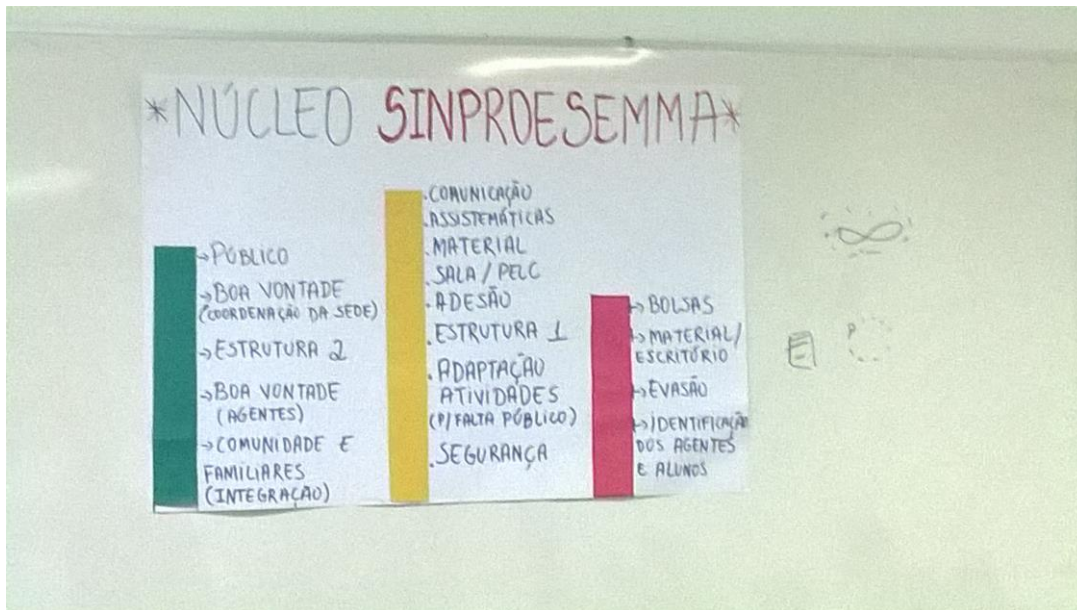 *NÚCLEO SINPROESEMMA*
→PÚBLICO
→BOA VONTADE
(COORDENAÇÃO DA SEDE)
→ESTRUTURA 2
→BOA VONTADE
(AGENTES)
→COMUNIDADE E
FAMILIARES
(INTEGRAÇÃO)
.COMUNICAÇÃO
.ASSISTEMÁTICAS
.MATERIAL
.SALA / PELC
.ADESÃO
.ESTRUTURA 1
.ADAPTAÇÃO
ATIVIDADES
(P/ FALTA PÚBLICO)
.SEGURANÇA
→BOLSAS
→MATERIAL/
ESCRITÓRIO
→EVASÃO
→IDENTIFICAÇÃO
DOS AGENTES
E ALUNOS
P